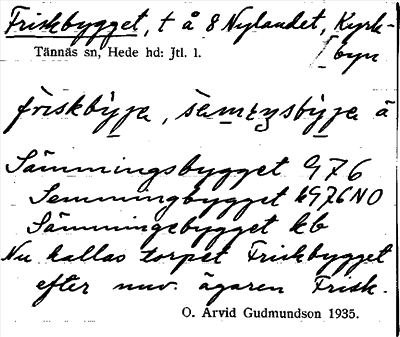 Friskbygget, t å 8 Nylandet, Kyrk-
byn
Tännäs sn, Hede hd: Jtl. l.
friskbyja, sämıysbyja ä
Sämmingsbygget G76
Semmingbygget kG76NO
Sämmingebygget kb
Nu kallas torpet Friskbygget
efter nuv. ägaren Frisk.
O. Arvid Gudmundson 1935.